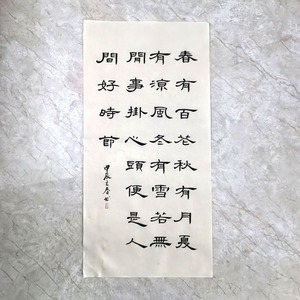 春有百花秋有月夏
有涼風冬有雪若無
閒事掛心頭便是人
間好時節
甲辰春